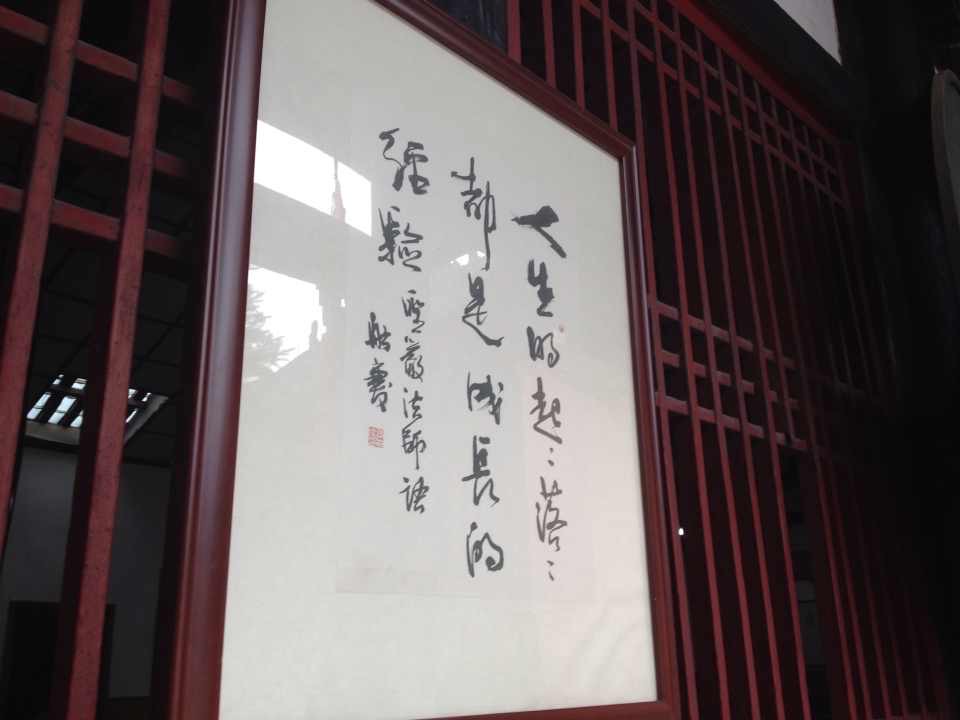 人生的起〻落〻
都是成長的
經驗
聖嚴法師語